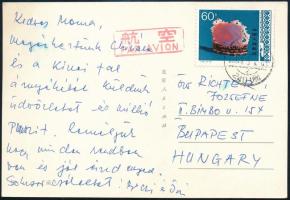 Kedves Mama,
megérkeztünk Chinába
és a Kínai fal
árnyékából küldünk
üdvözletet és millió
Puszit. Reméljük
hogy minden rendben
van és jól érzed magad.
Sokszor ölelünk!
航空
PAR AVION
60分
DR RICHTER
JOZSEFNE
II. BIMBO U. 15X
BUDAPEST
HUNGARY